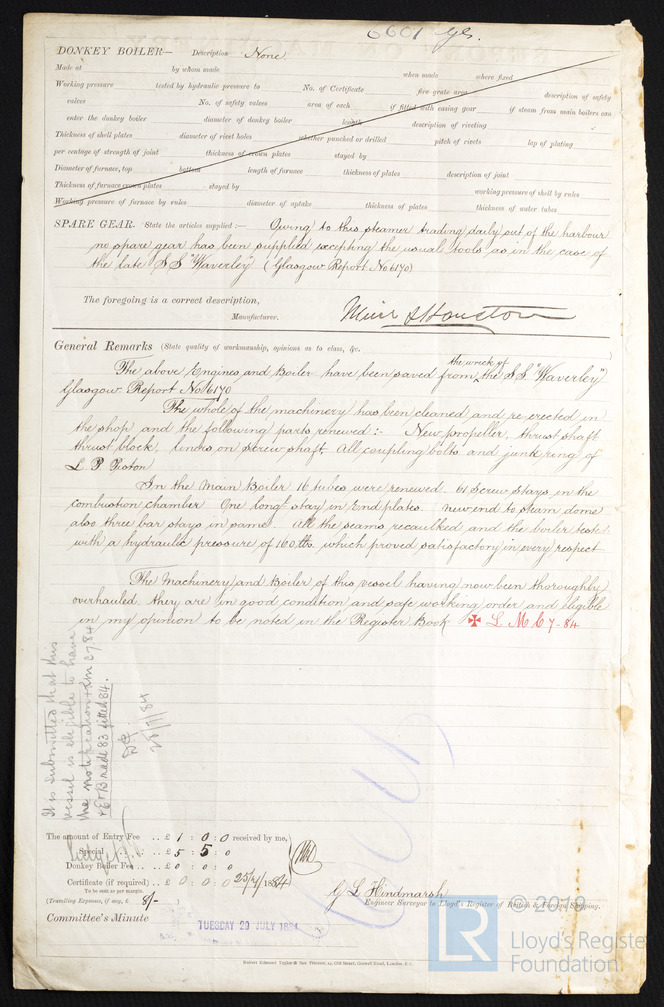 6601 Gls.
DONKEY BOILER— Description None
Made at by whom made when made where fixed
Working pressure tested by hydraulic pressure to No. of Certificate fire-grate area description of safety
valves No. of safety valves area of each if fitted with easing gear if steam from main boilers can
enter the donkey boiler diameter of donkey boiler length description of riveting
Thickness of shell plates diameter of rivet holes whether punched or drilled pitch of rivets lap of plating
per centage of strength of joint thickness of crown plates stayed by
Diameter of furnace, top bottom length of furnace thickness of plates description of joint
Thickness of furnace crown plates stayed by working pressure of shell by rules
Working pressure of furnace by rules diameter of uptake thickness of plates thickness of water tubes
SPARE GEAR. State the articles supplied:— Owing to this steamer trading daily out of the harbour
no spare gear has been supplied excepting the usual tools as in the case of
the late S S "Waverley" (Glasgow Report No 6170)
The foregoing is a correct description,
Manufacturer. Muir & Houston
General Remarks (State quality of workmanship, opinions as to class, &c.
the wreck of
The above Engines and Boiler have been saved from the S.S. "Waverley"
Glasgow Report No 6170
The whole of the machinery has been cleaned and re-erected in
the shop and the following parts renewed:- New propeller, thrust shaft
thrust block, liners on screw shaft. All coupling bolts and junk ring of
L. P. Piston
In the Main Boiler 16 tubes were renewed. 61 Screw stays in the
combustion chamber One long stay in End plates. new end to steam dome
also three bar stays in same. All the seams recaulked and the boiler tested
with a hydraulic pressure of 160 lbs. which proved satisfactory in every respect
The Machinery and Boiler of this vessel having now been thoroughly
overhauled they are in good condition and safe working order and eligible
in my opinion to be noted in the Register Book ✠ L M C 7-84
It is submitted that this
vessel is eligible to have
the notification + LMC 7.84
+ E & B made 83 fitted 84.
25/7/84
The amount of Entry Fee .. £ 1 : 0 : 0 received by me,
Special .. £ 5 : 5 : 0
Donkey Boiler Fee .. £ 0 : 0 : 0
Certificate (if required) .. £ 0 : 0 : 0 25/7/1884
To be sent as per margin.
(Travelling Expenses, if any, £ 8/- )
G L Hindmarsh
Engineer Surveyor to Lloyd's Register of British & Foreign Shipping.
Committee's Minute
TUESDAY 29 JULY 1884
© 2019
LR
Lloyd's Register
Foundation